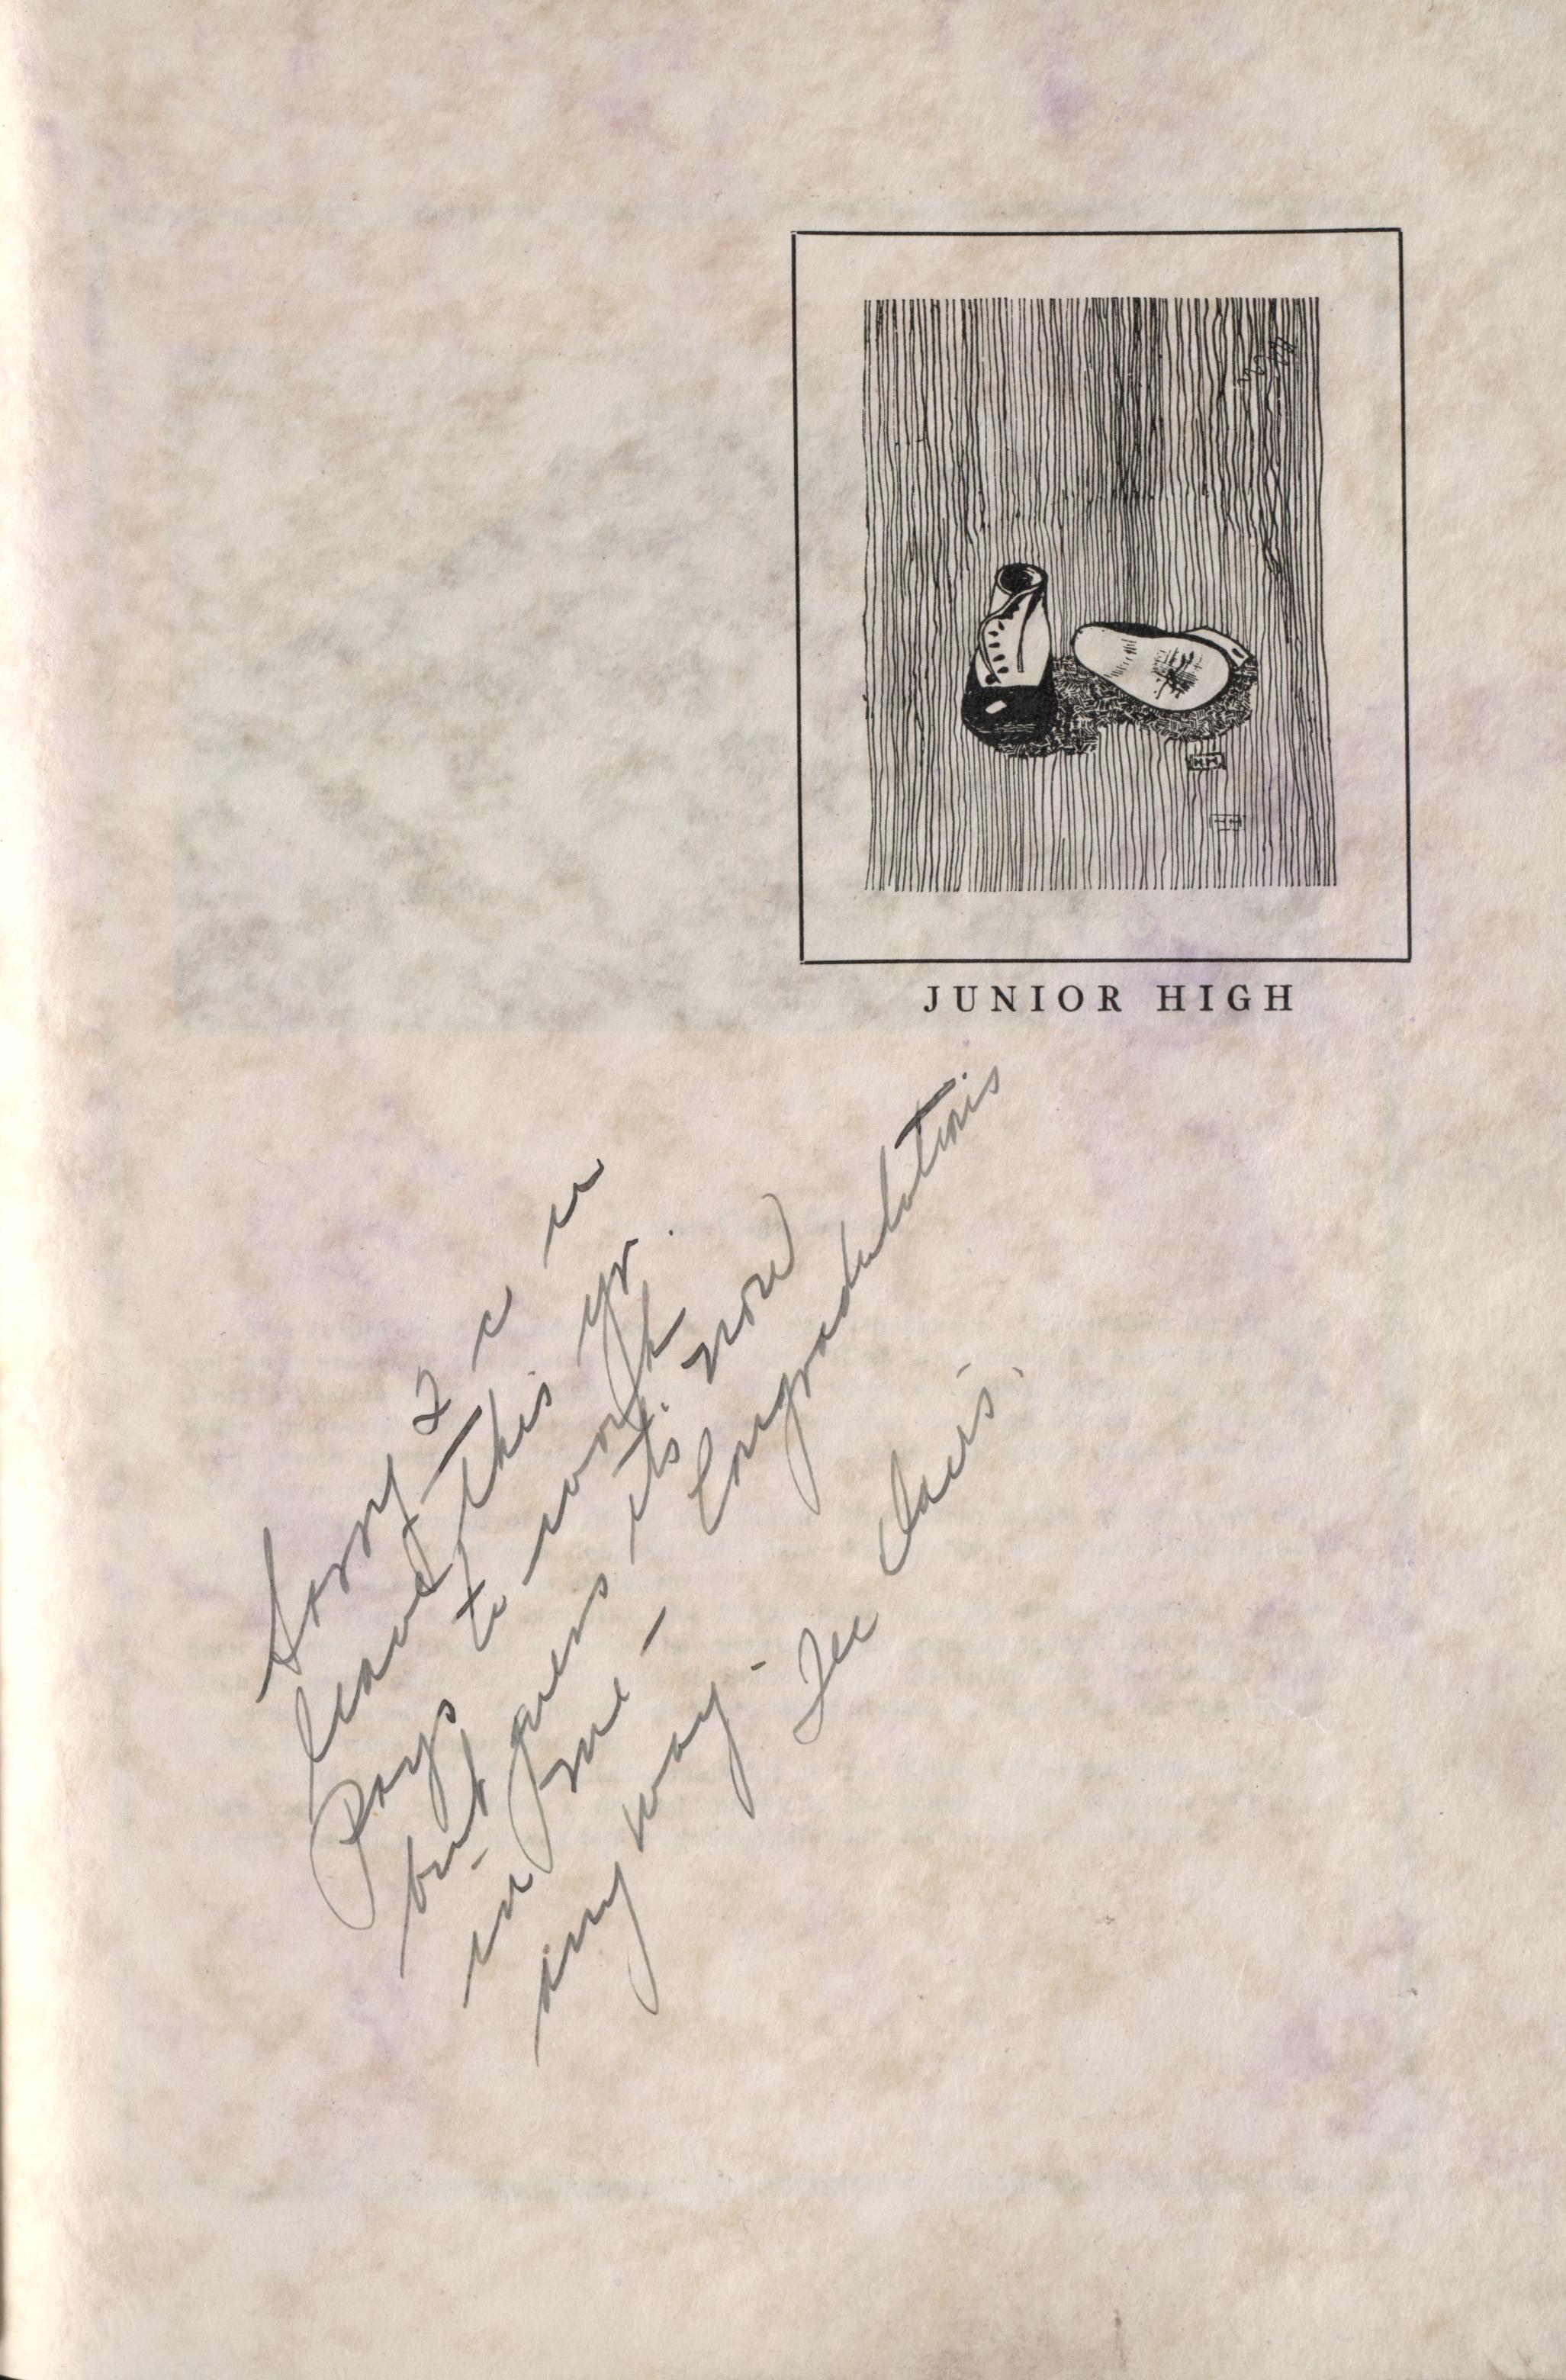 HH
JUNIOR HIGH
Sorry 2 c u
leave this yr.
Pays to work
but guess its now
in me – Congradulations
any way –
Davis.